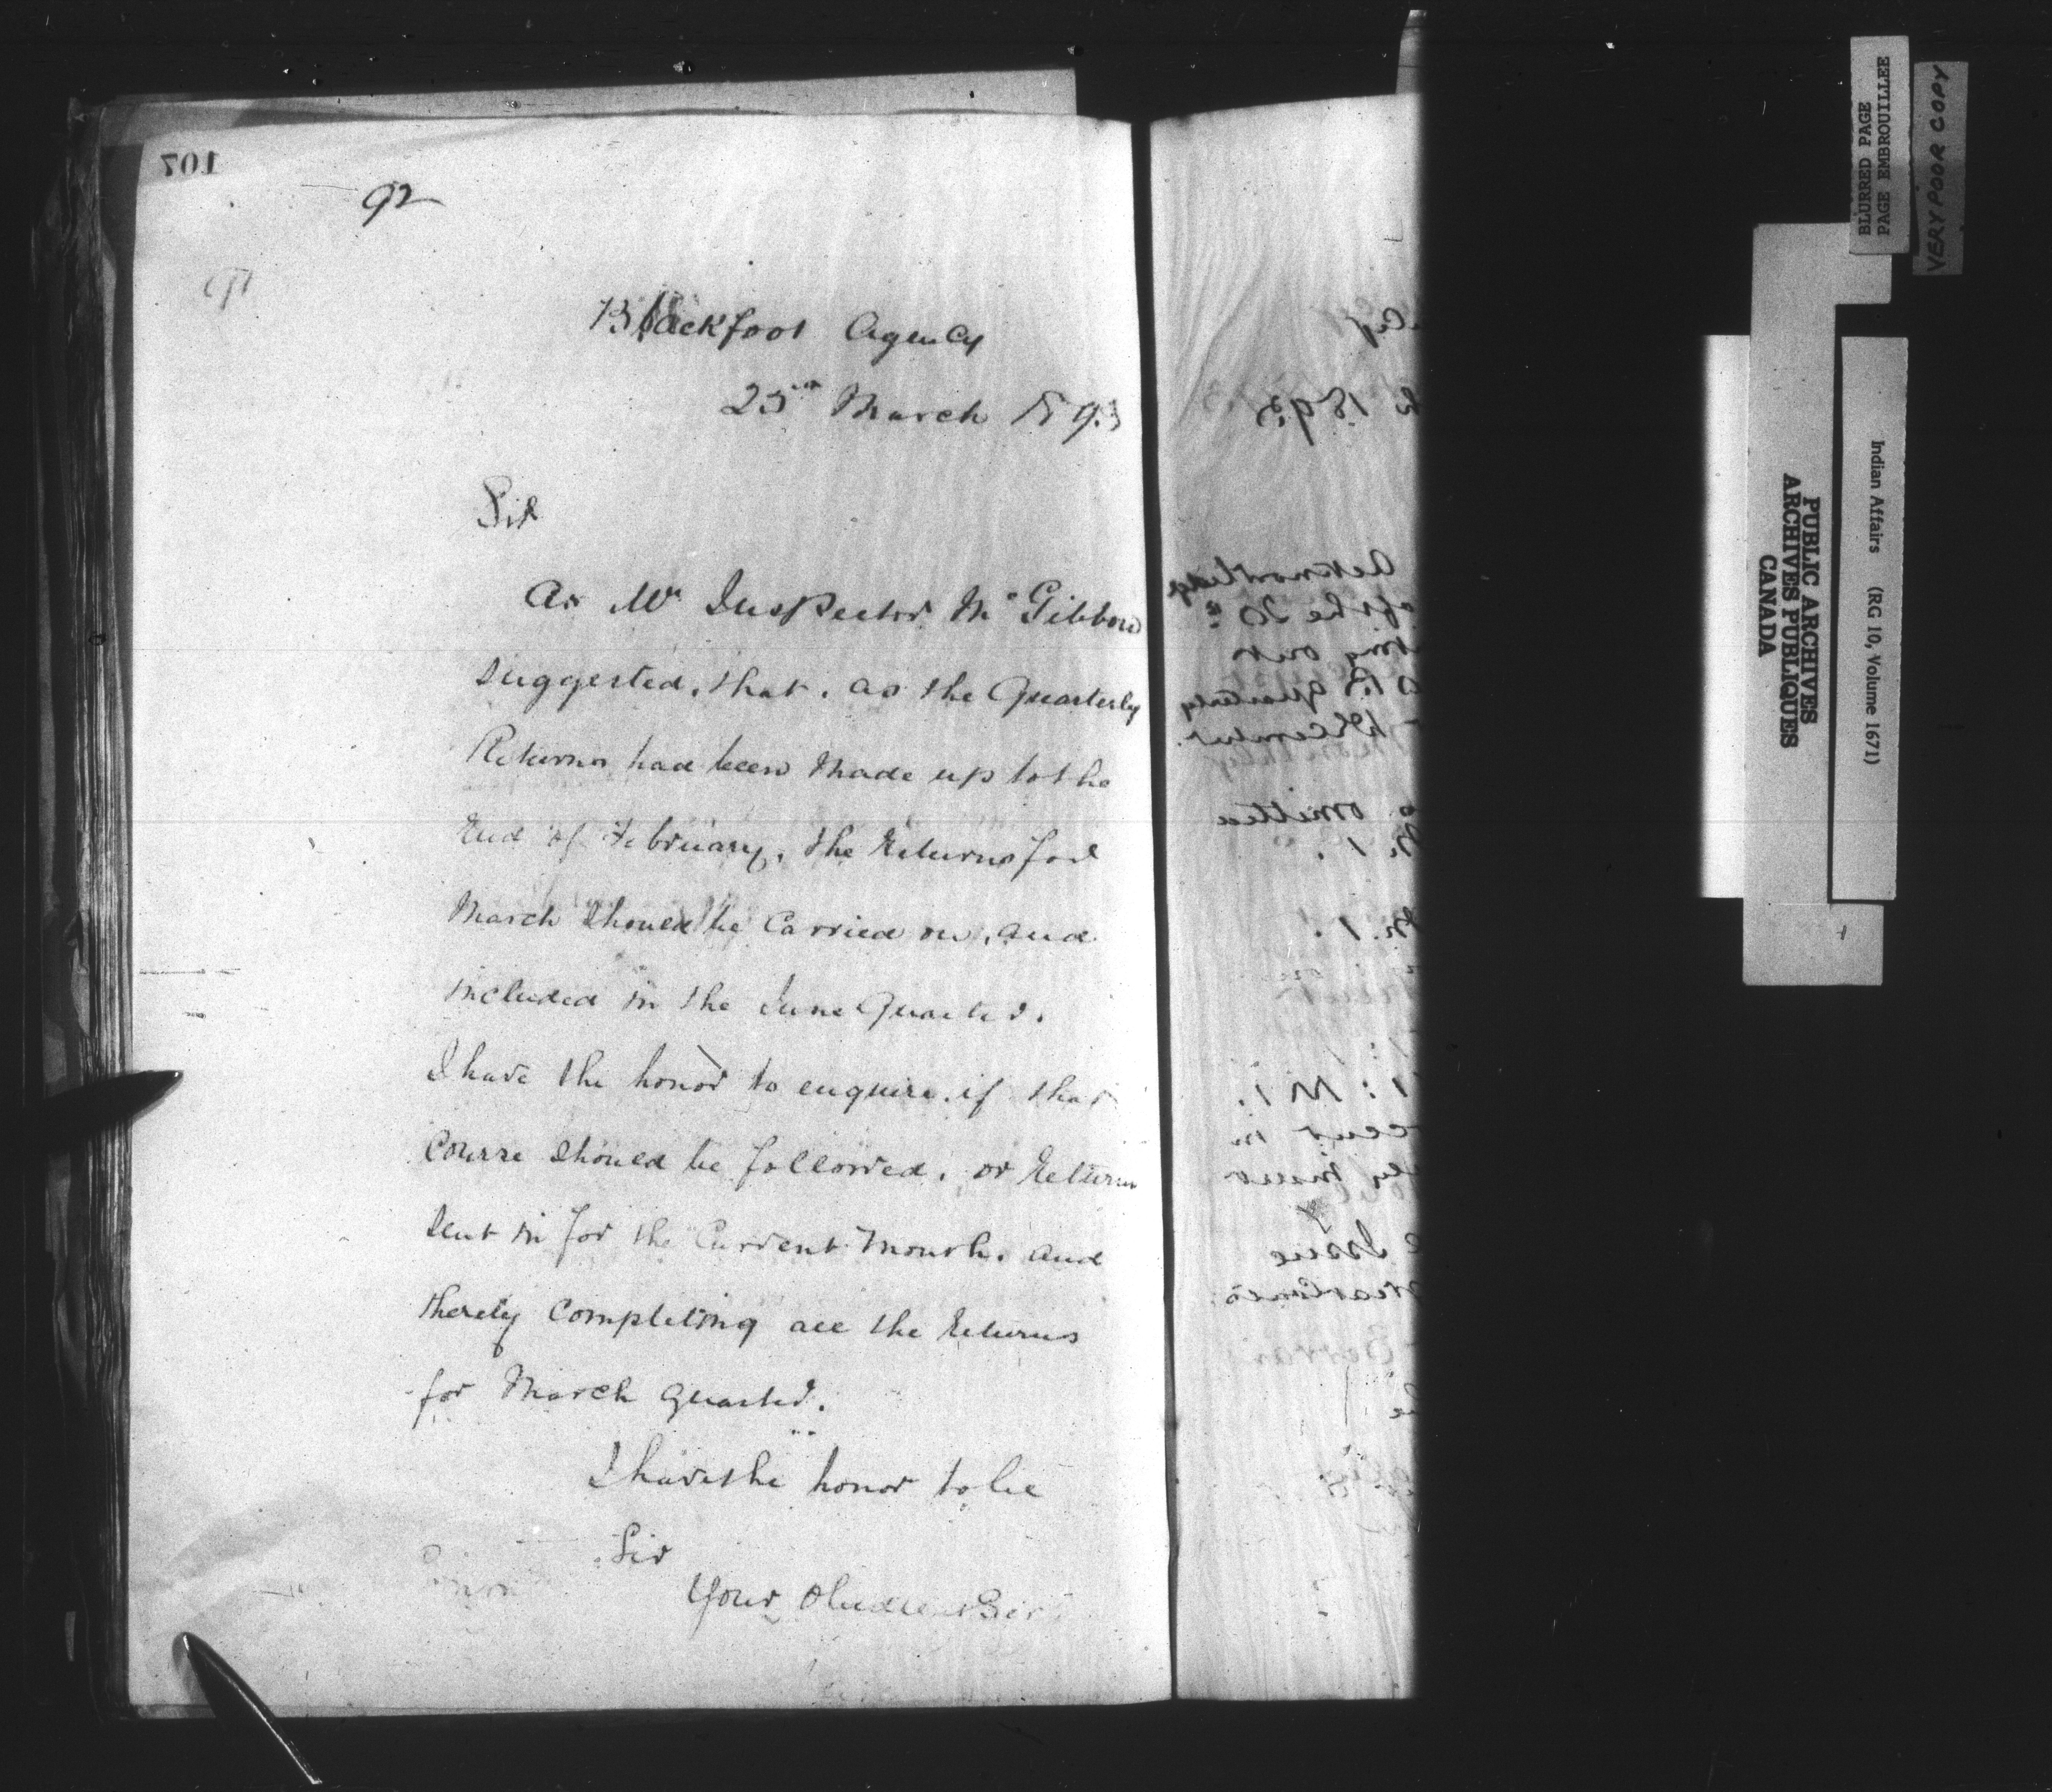 107
92
Blackfoot Agency
25th March 1893
Sir
As Mr Inspector McGibbon
suggested, that, as the Quarterly
Returns had been made up to the
End of February, the Returns for
March should be carried on, and
included in the June Quarter.
I have the honor to enquire if that
Course should be followed, or Returns
sent in for the Current Month, and
thereby Completing all the Returns
for March quarter.
I have the honor to be
Sir
Your Obedient Ser
1893
Acknowledge
of the 20
our
quarterly
December
omitted
Issue
BLURRED PAGE
PAGE EMBROUILLEE
VERY POOR COPY
PUBLIC ARCHIVES
ARCHIVES PUBLIQUES
CANADA
Indian Affairs (RG 10, Volume 1671)